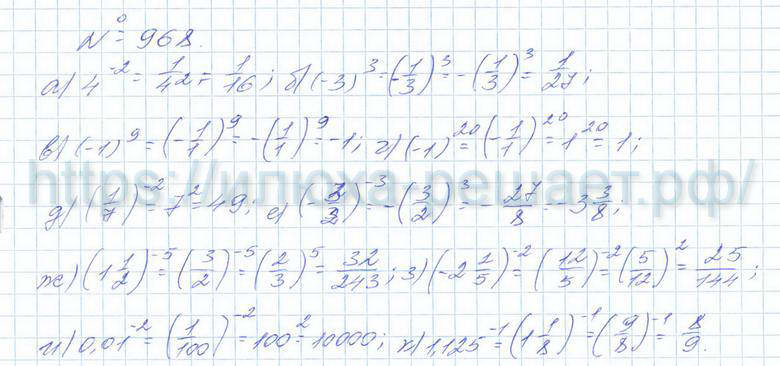 № 968.
а) 4^{-2} = 1/4² = 1/16; б) (-3)^3 = (-1/3)^3 = -(1/3)^3 = 1/27;
в) (-1)^9 = (-1/1)^9 = -(1/1)^9 = -1; г) (-1)^{20} = (-1/1)^{20} = 1^{20} = 1;
https://илюха-решает.рф/
д) (1/7)^{-2} = 7² = 49; е) (-2/3)^{-3} = -(3/2)^3 = -27/8 = -3 3/8;
ж) (1 1/2)^{-5} = (3/2)^{-5} = (2/3)^5 = 32/243; з) (-2 1/5)^{-2} = (12/5)^{-2} = (5/12)^2 = 25/144;
и) 0,01^{-2} = (1/100)^{-2} = 100² = 10000; к) 1,125^{-1} = (1 1/8)^{-1} = (9/8)^{-1} = 8/9.